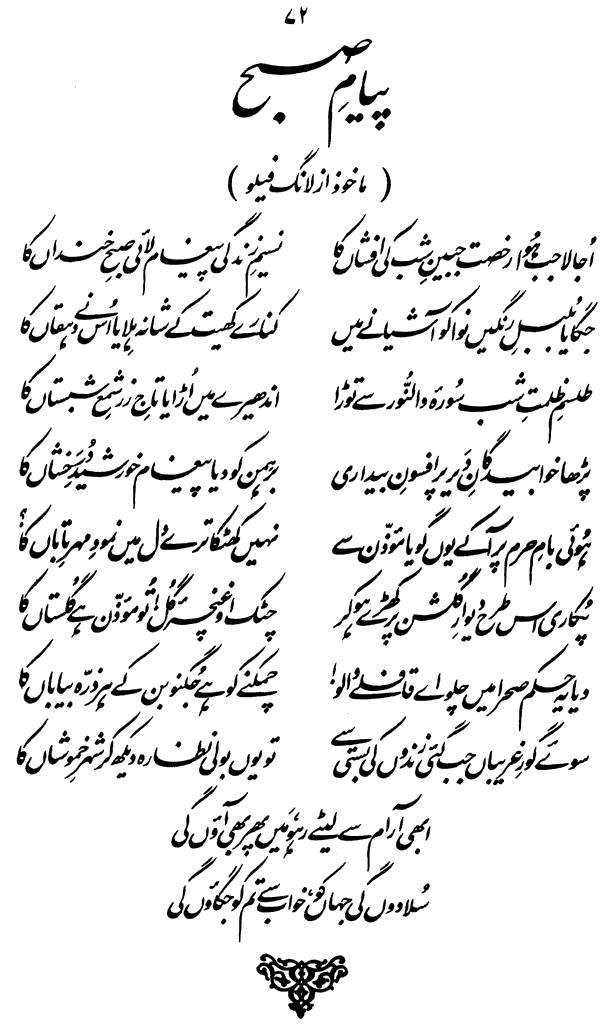 ۷۲
پیامِ صبح
(ماخوذ از لانگ فیلو)
اُجالا جب ہُوا رخصت جبینِ شب کی افشاں کا نسیمِ زندگی پیغام لائی صبحِ خنداں کا
جگایا بُلبلِ رنگیں نوا کو آشیانے میں کنارے کھیت کے شانہ ہِلایا اُس نے دہقاں کا
طلسمِ ظلمتِ شب سُورۂ والنُّور سے توڑا اندھیرے میں اُڑایا تاجِ زر شمعِ شبستاں کا
پڑھا خوابیدگانِ دَیر پر افسونِ بیداری برہمن کو دیا پیغام خورشیدِ دُرَخشاں کا
ہُوئی بامِ حرم پر آ کے یوں گویا مؤذّن سے نہیں کھٹکا ترے دل میں نمودِ مہرِ تاباں کا؟
پُکاری اس طرح دیوارِ گلشن پر کھڑے ہو کر چٹک او غنچۂ گُل! تُو مؤذّن ہے گُلستاں کا
دیا یہ حکم صحرا میں چلو اے قافلے والو! چمکنے کو ہے جُگنو بن کے ہر ذرّہ بیاباں کا
سوئے گورِ غریباں جب گئی زندوں کی بستی سے تو یوں بولی نظارہ دیکھ کر شہرِ خموشاں کا
ابھی آرام سے لیٹے رہو، مَیں پھر بھی آؤں گی
سُلا دوں گی جہاں کو، خواب سے تم کو جگاؤں گی